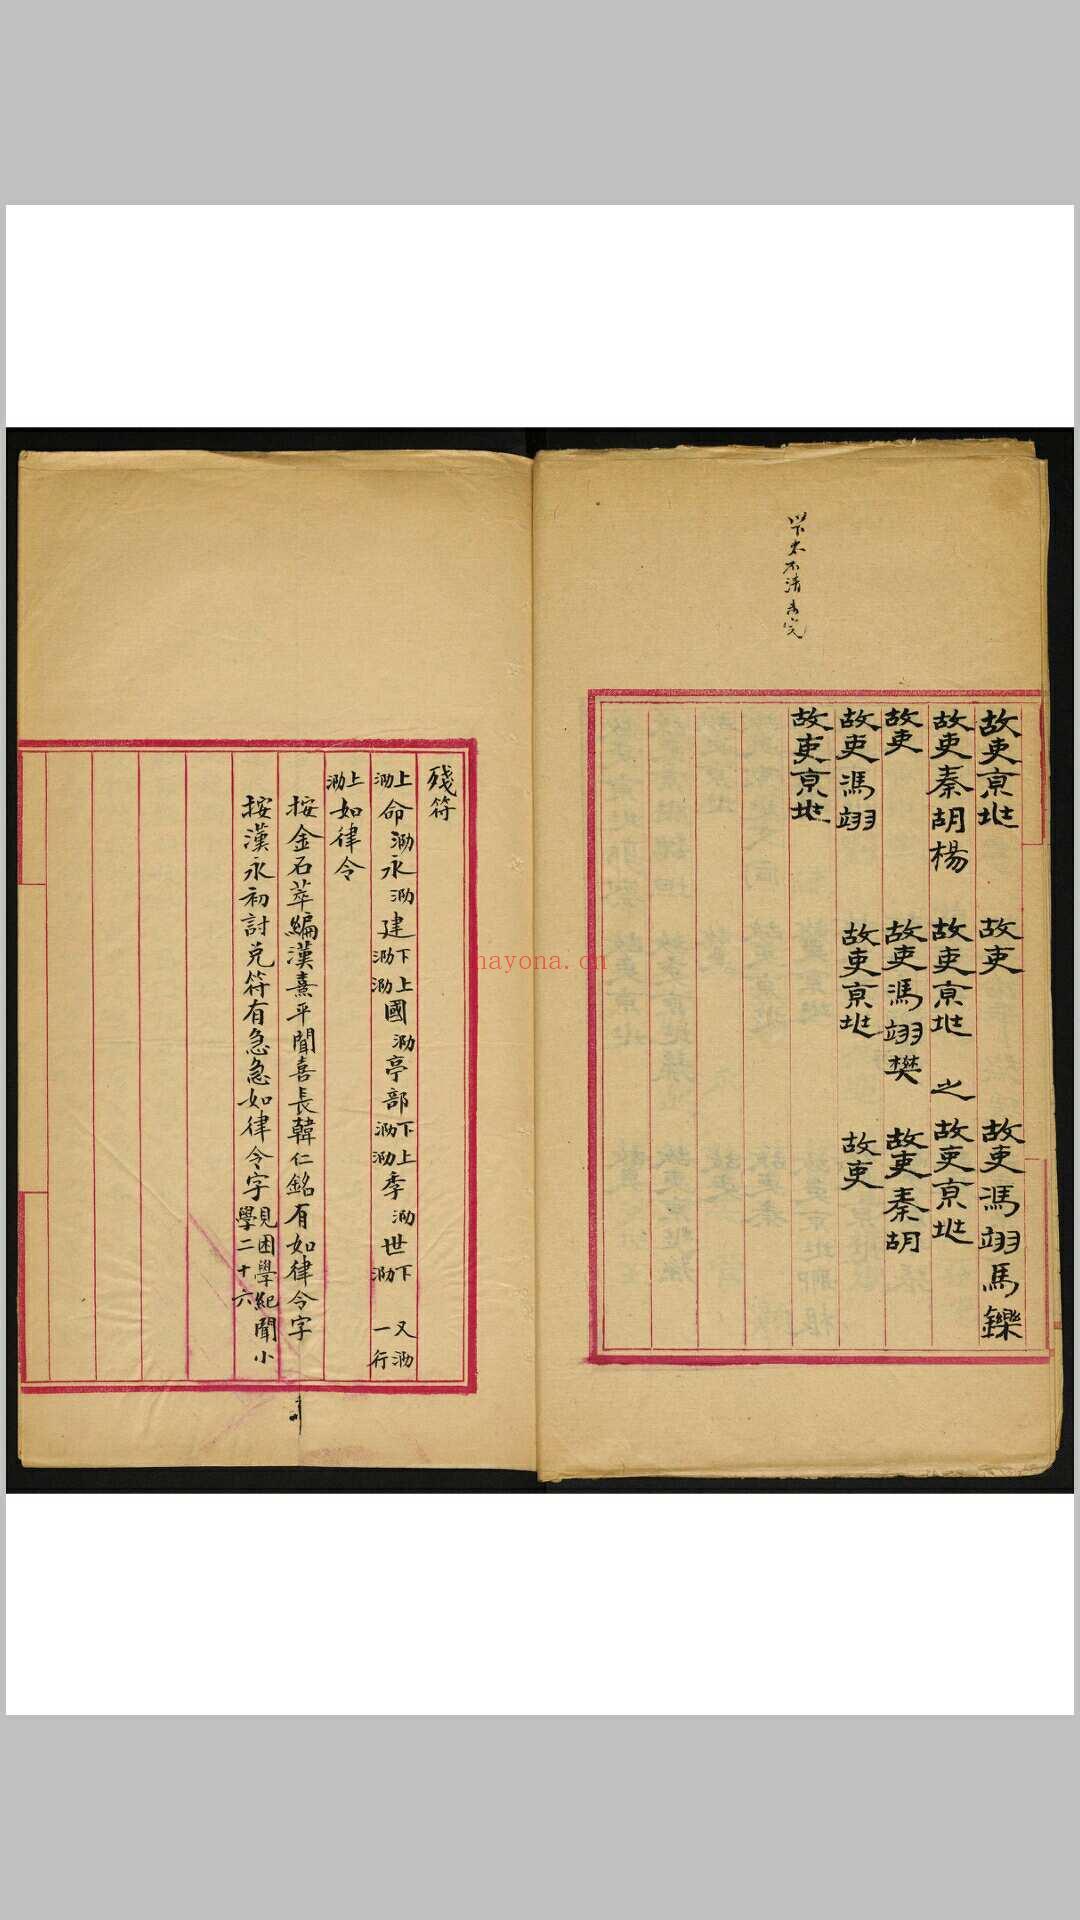 故吏京地 故吏 故吏馮翊馬鑠
故吏秦胡楊 故吏京地 之 故吏京地
故吏 故吏馮翊樊 故吏秦胡
故吏馮翊 故吏京地 故吏
故吏京地
殘符
上泐命泐永泐建下泐上泐國泐亭部下泐上泐季泐世下泐 又泐一行
上泐如律令
按金石萃編漢熹平聞喜長韓仁銘有如律令字
按漢永初討羌符有急急如律令字見困學紀聞小學二十六
hayona.cn